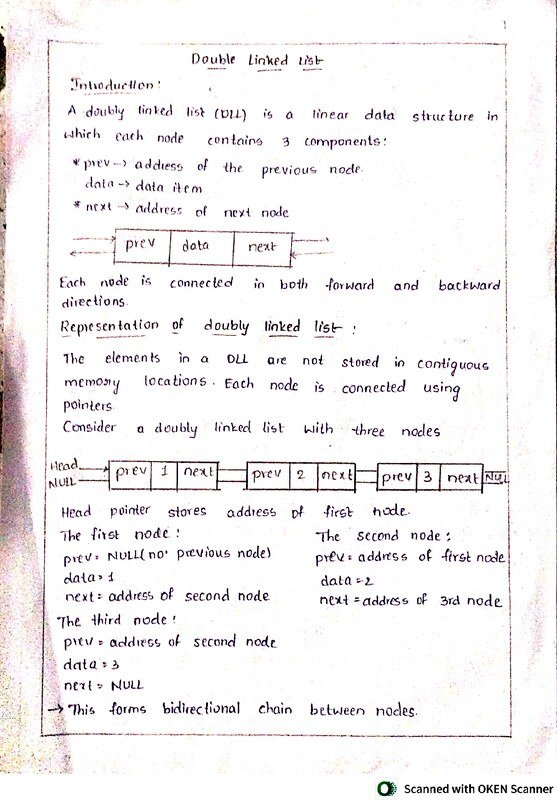 1
Double Linked list
Introduction:
A doubly linked list (DLL) is a linear data structure in
which each node contains 3 components:
* prev → address of the previous node.
data → data item
* next → address of next node
prev data next
Each node is connected in both forward and backward
directions.
Representation of doubly linked list :
The elements in a DLL are not stored in contiguous
memory locations. Each node is connected using
pointers.
Consider a doubly linked list with three nodes
Head
NULL
prev 1 next prev 2 next prev 3 next NULL
Head pointer stores address of first node.
The first node :
prev = NULL (no previous node)
data = 1
next = address of second node
The second node :
prev = address of first node
data = 2
next = address of 3rd node
The third node :
prev = address of second node
data = 3
next = NULL
→ This forms bidirectional chain between nodes.
Scanned with OKEN Scanner